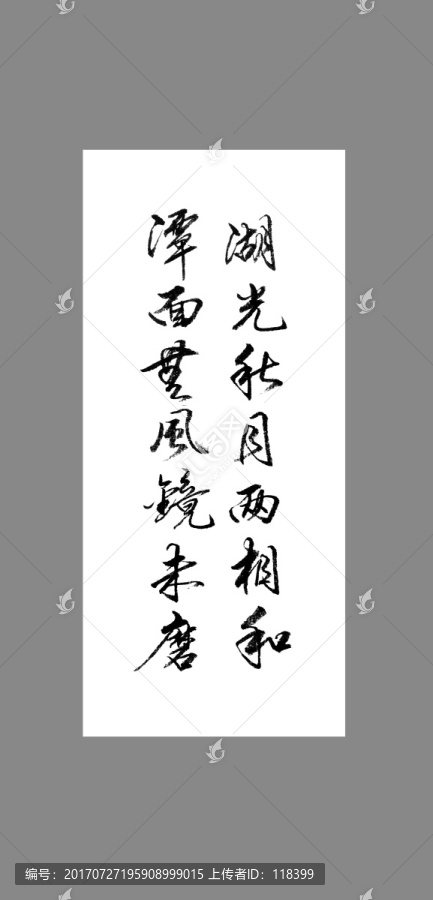 湖光秋月两相和
潭面無風鏡未磨
编号：20170727195908999015 上传者ID：118399